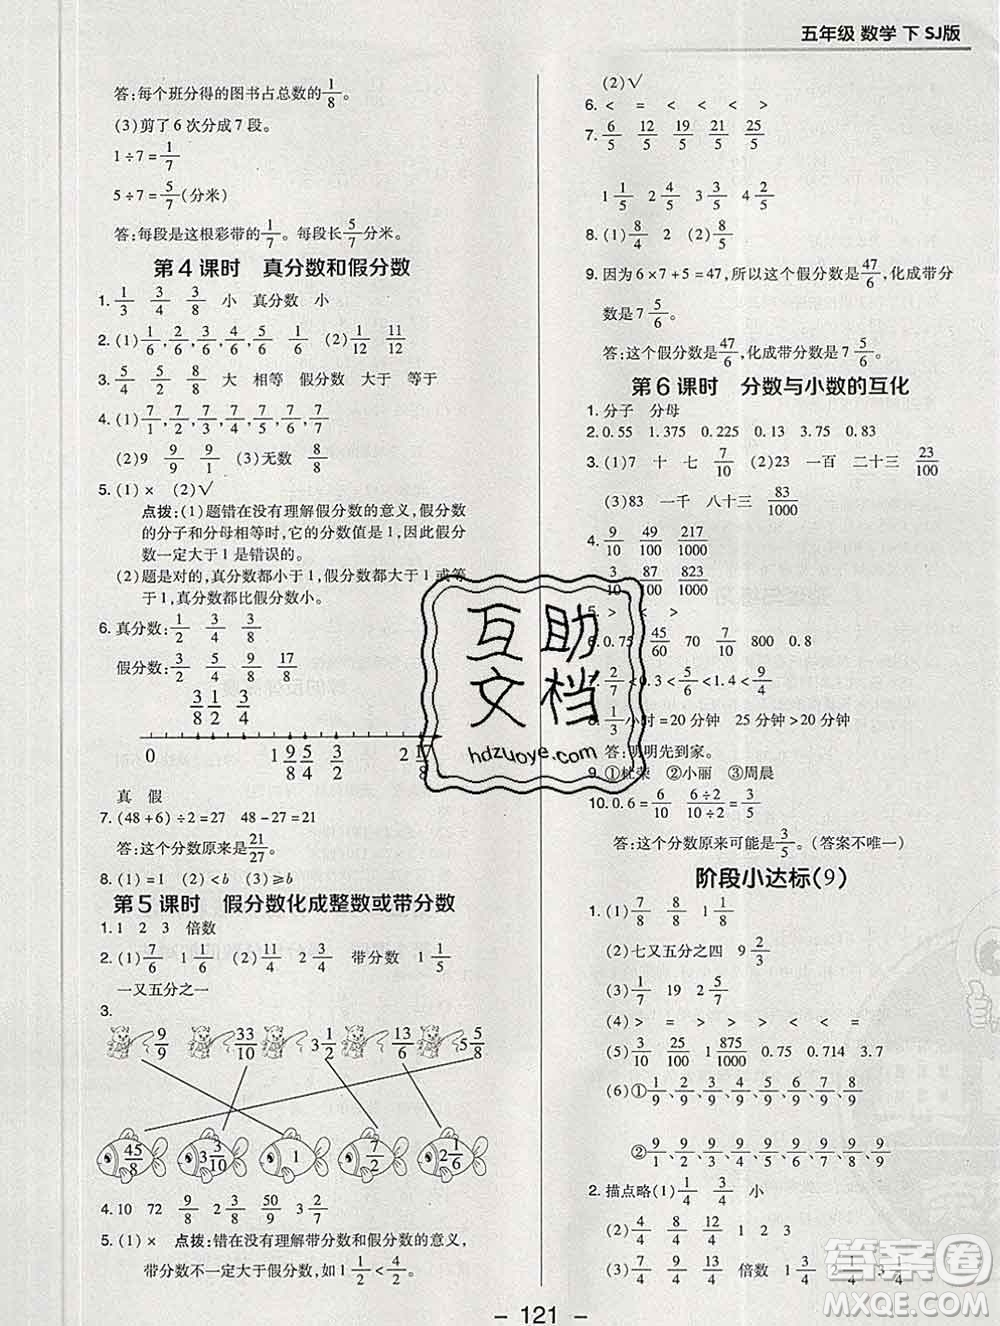 五年级 数学 下 SJ版
答:每个班分得的图书占总数的1/8。
(3)剪了6次分成7段。
1÷7=1/7
5÷7=5/7(分米)
答:每段是这根彩带的1/7。每段长5/7分米。
第4课时 真分数和假分数
1. 1/3 3/4 3/8 小 真分数 小
2. (1)1/6, 2/6, 3/6, 4/6, 5/6 1/6 (2)1/12 11/12
3. 5/4 5/2 8/8 大 相等 假分数 大于 等于
4. (1)7/1, 7/2, 7/3, 7/4, 7/5, 7/6, 7/7
(2)9 9/9 9/8 (3)无数 8/8
5. (1)× (2)√
点拨:(1)题错在没有理解假分数的意义,假分数
的分子和分母相等时,它的分数值是1,因此假分
数一定大于1是错误的。
(2)题是对的,真分数都小于1,假分数大于1或等
于1,真分数都比假分数小。
6. 真分数:1/2 3/4 3/8
假分数:3/2 5/4 9/8 17/8
3/8 1/2 3/4
0 1 9/8 5/4 3/2 2 17/8
真 假
7. (48+6)÷2=27 48-27=21
答:这个分数原来是21/27。
8. (1)=1 (2)<b (3)≥b
第5课时 假分数化成整数或带分数
1. 1 2 3 倍数
2. (1)7/6 1 1/6 (2)11/4 2 3/4 带分数 1 1/5
一又五分之一
3.
9/9 33/10 3 1/2 13/6 5 5/8
45/8 3 3/10 1 7/2 2 1/6
4. 10 72 9/2 3/8 50/9 3/2
5. (1)× 点拨:错在没有理解带分数和假分数的意义,
带分数不一定大于假分数,如1 1/2<4/2。
(2)√
6. < = < < < >
7. 6/5 12/5 19/5 21/5 25/5
1 1/5 2 2/5 3 3/5 4 2/5
8. (1)8/4 2 (2)4
9. 因为6×7+5=47,所以这个假分数是47/6,化成带分
数是7 5/6。
答:这个假分数是47/6,化成带分数是7 5/6。
第6课时 分数与小数的互化
1. 分子 分母
2. 0.55 1.375 0.225 0.13 3.75 0.83
3. (1)7 十 七 7/10 (2)23 一百 二十三 23/100
(3)83 一千 八十三 83/1000
4. 9/10 49/100 217/1000
3/10 87/100 823/1000
5. > < >
6. 0.75 45/60 70 7/10 800 0.8
7. 2/7<0.3<5/6<1.4<9/6
8. 1/3小时=20分钟 25分钟>20分钟
答:明明先到家。
9. ①杜荣 ②小丽 ③周晨
10. 0.6=6/10 6÷2/10÷2=3/5
答:这个分数原来可能是3/5。(答案不唯一)
阶段小达标(9)
1. (1)7/8 8/8 1 1/8
(2)七又五分之四 9 2/3
(3)1/9 19 2 1/9
(4)> = > > > <
(5)3/10 1/4 1 875/1000 0.75 0.714 3.7
(6)①1/9、2/9、3/9、4/9、5/9、6/9、7/9、8/9
②9/9、9/8、9/7、9/6、9/5、9/4、9/3、9/2、9/1
2. 描点略(1)1/4 3/4 小
(2)4/4 8/4 12/4 1 2 3
(3)5/4 10/4 倍数 1 1/4 2 2/4
互助文档
hdzuoye.com
答案圈
MXQE.COM
- 121 -